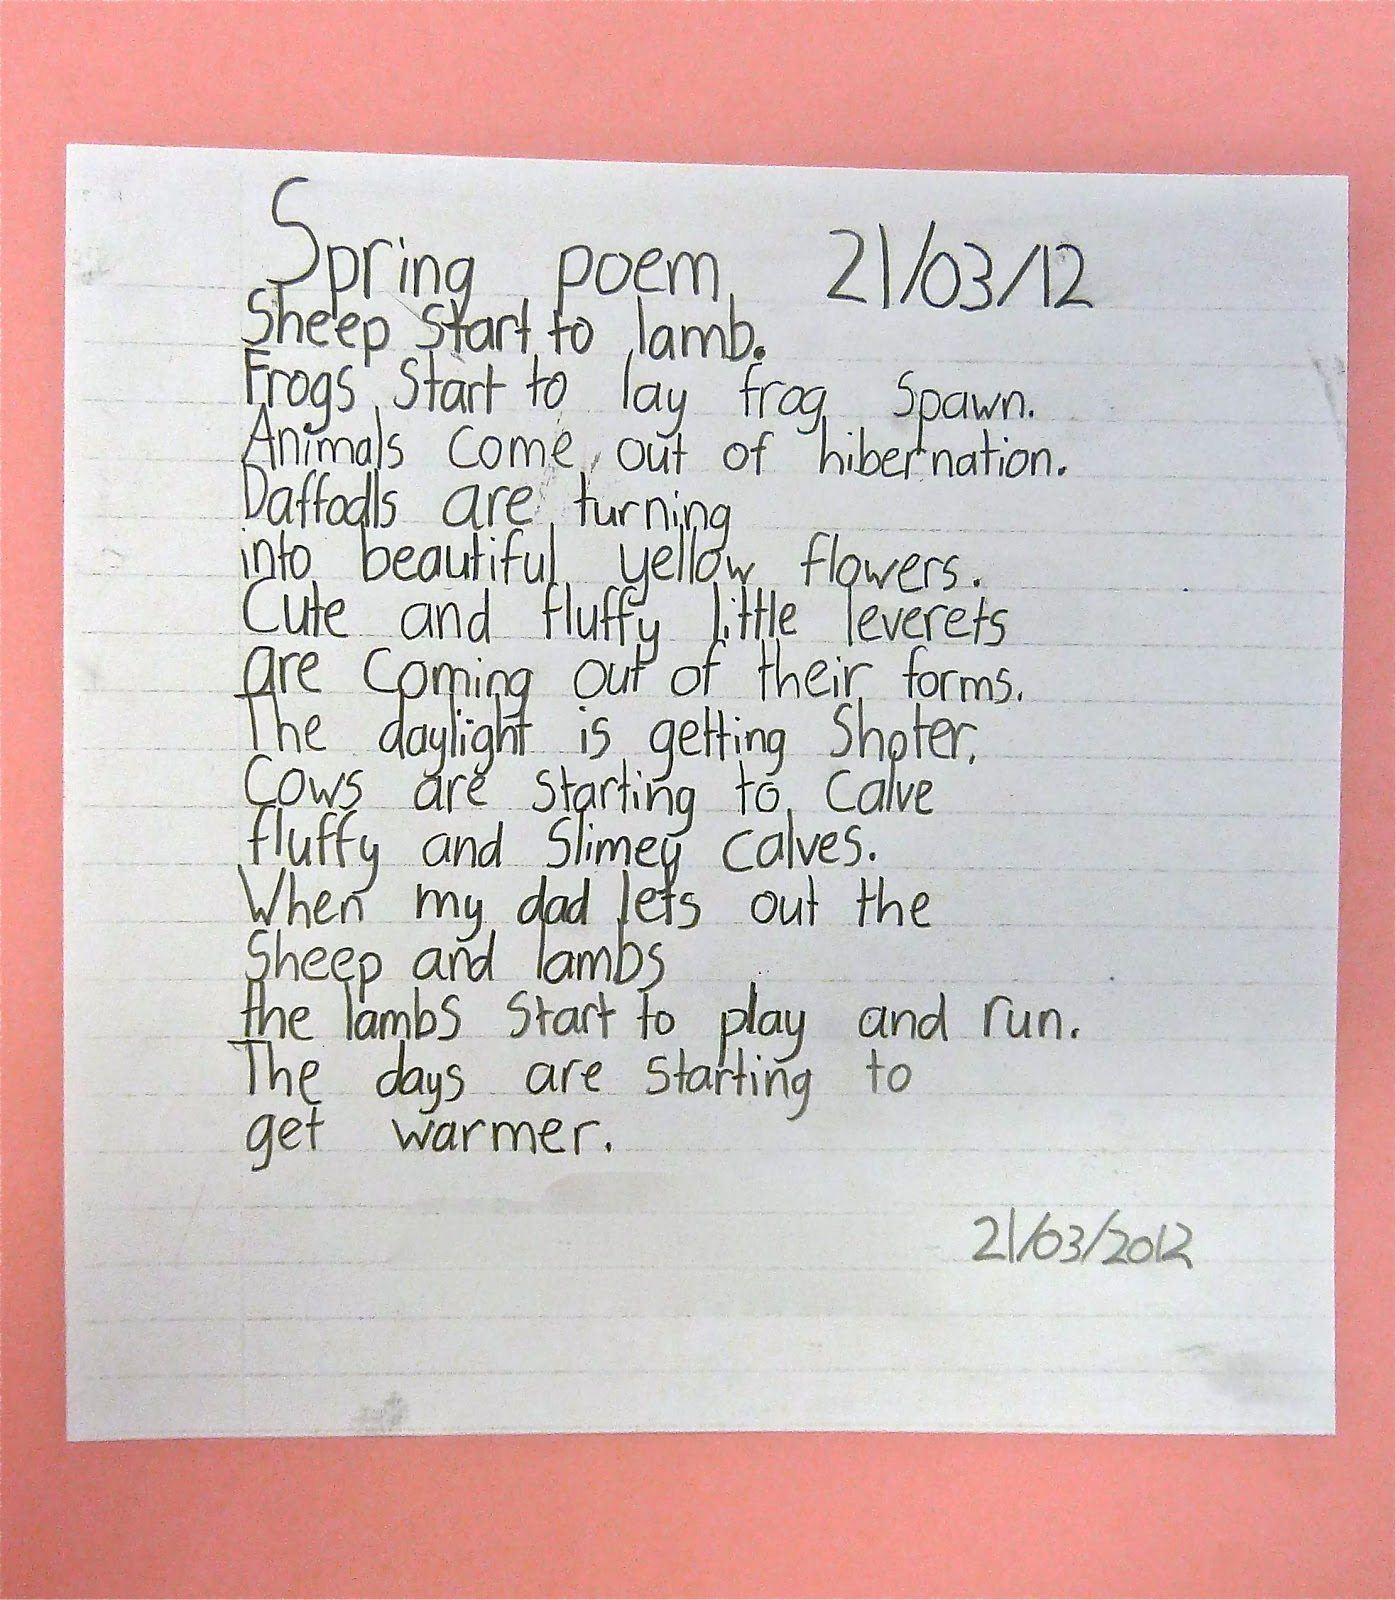 Spring poem 21/03/12
Sheep start to lamb.
Frogs start to lay frog spawn.
Animals come out of hibernation.
Daffodls are turning
into beautiful yellow flowers.
Cute and fluffy little leverets
are coming out of their forms.
The daylight is getting shoter.
Cows are starting to calve
fluffy and slimey calves.
When my dad lets out the
sheep and lambs
the lambs start to play and run.
The days are starting to
get warmer.
21/03/2012